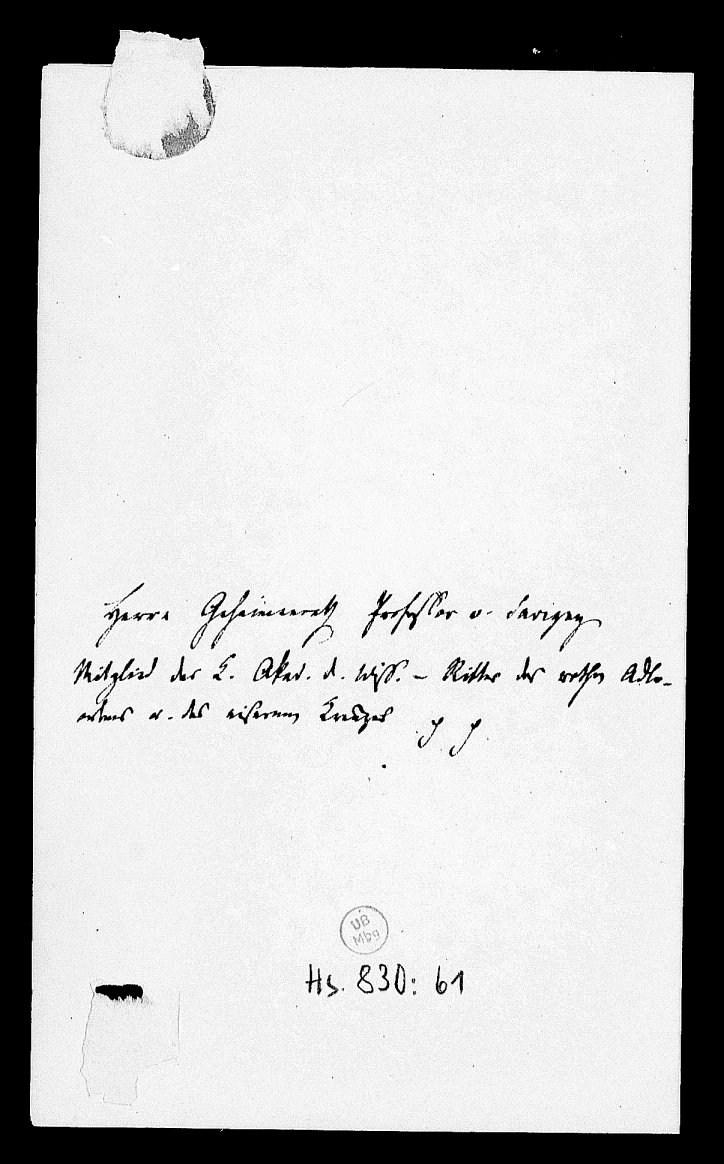 Herrn Geheimerath Professor v. Savigny
Mitglied der K. Akad. d. Wiss. – Ritter des rothen Adler-
ordens u. des eisernen Kreuzes p p.
UB
Mbg
Hs. 830: 61